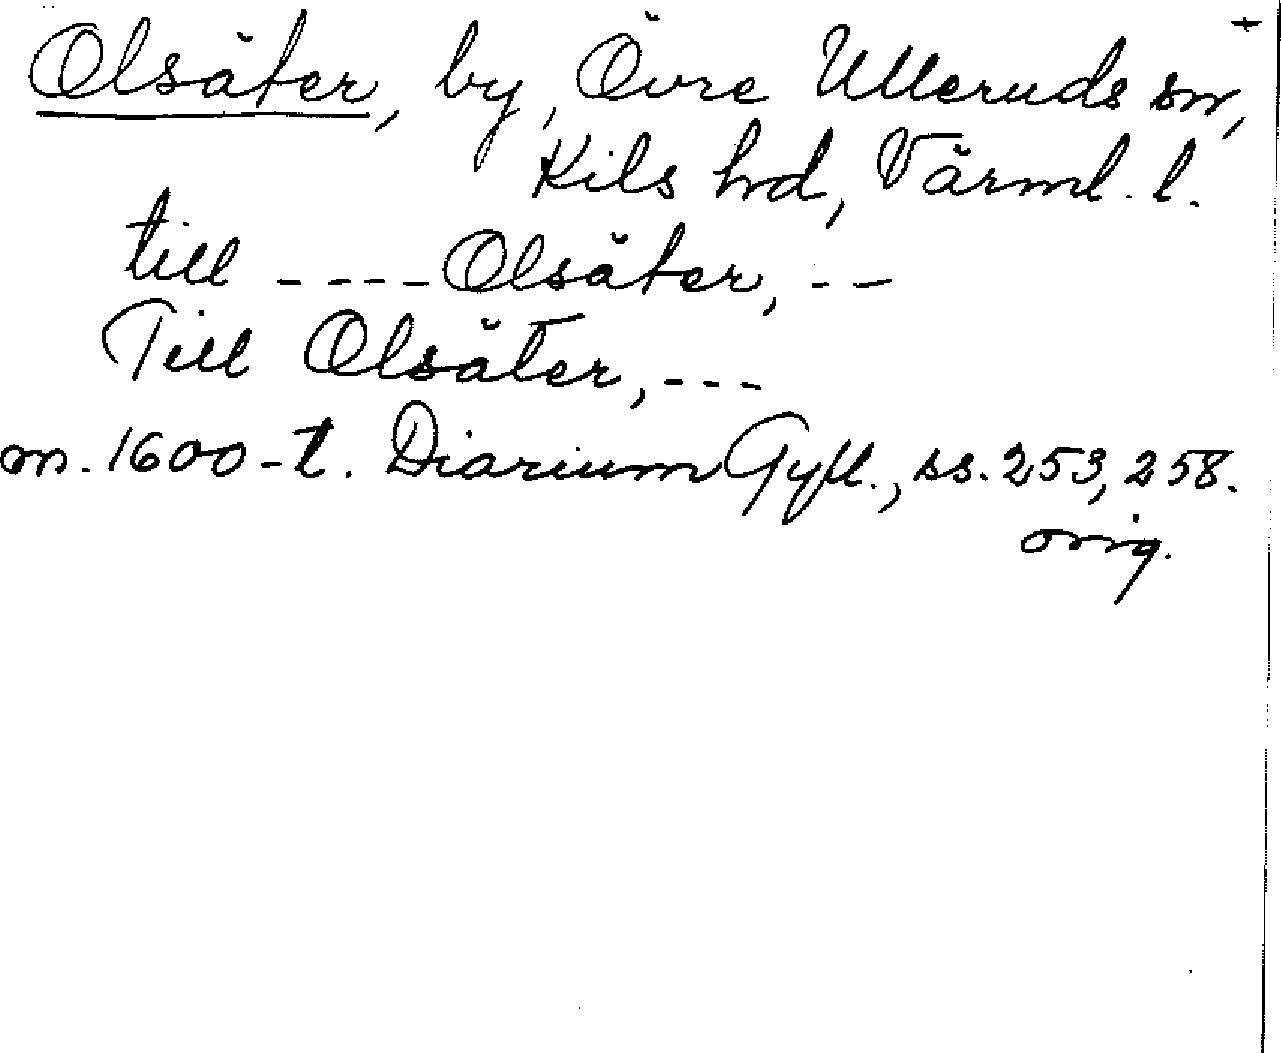 Olsäter, by, Övre Ulleruds sn,
Kils hd, Värml. l.
till ---- Olsäter, --
Till Olsäter, ---
m. 1600-t. Diarium Gyll., ss. 253, 258.
orig.